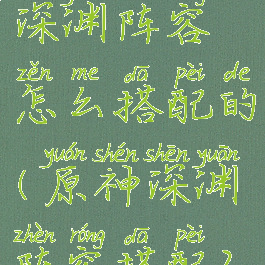 深渊阵容
zěn me dā pèi de
怎么搭配的
yuán shén shēn yuān
(原神深渊
zhèn róng dā pèi
阵容搭配)